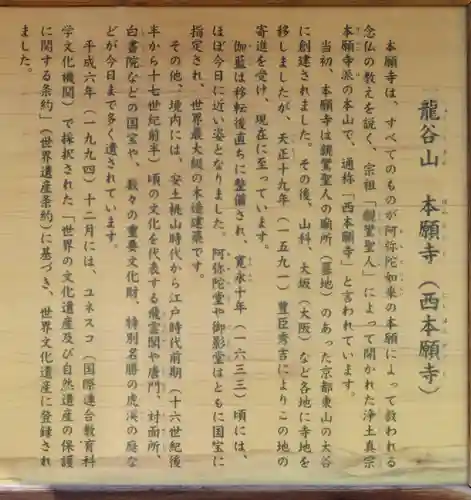 龍谷山 本願寺（西本願寺）
本願寺は、すべてのものが阿弥陀如来の本願によって救われる
念仏の教えを説く、宗祖「親鸞聖人」によって開かれた浄土真宗
本願寺派の本山で、通称「西本願寺」と言われています。
当初、本願寺は親鸞聖人の廟所（墓地）のあった京都東山の大谷
に創建されました。その後、山科、大坂（大阪）など各地に寺地を
移しましたが、天正十九年（一五九一）豊臣秀吉によりこの地の
寄進を受け、現在に至っています。
伽藍は移転後直ちに整備され、寛永十年（一六三三）頃には、
ほぼ今日に近い姿となりました。阿弥陀堂や御影堂はともに国宝に
指定され、世界最大級の木造建築です。
その他、境内には、安土桃山時代から江戸時代前期（十六世紀後
半から十七世紀前半）頃の文化を代表する飛雲閣や唐門、対面所、
白書院などの国宝や、数々の重要文化財、特別名勝の虎渓の庭な
どが今日まで多く遺されています。
平成六年（一九九四）十二月には、ユネスコ（国際連合教育科
学文化機関）で採択された「世界の文化遺産及び自然遺産の保護
に関する条約」（世界遺産条約）に基づき、世界文化遺産に登録され
ました。